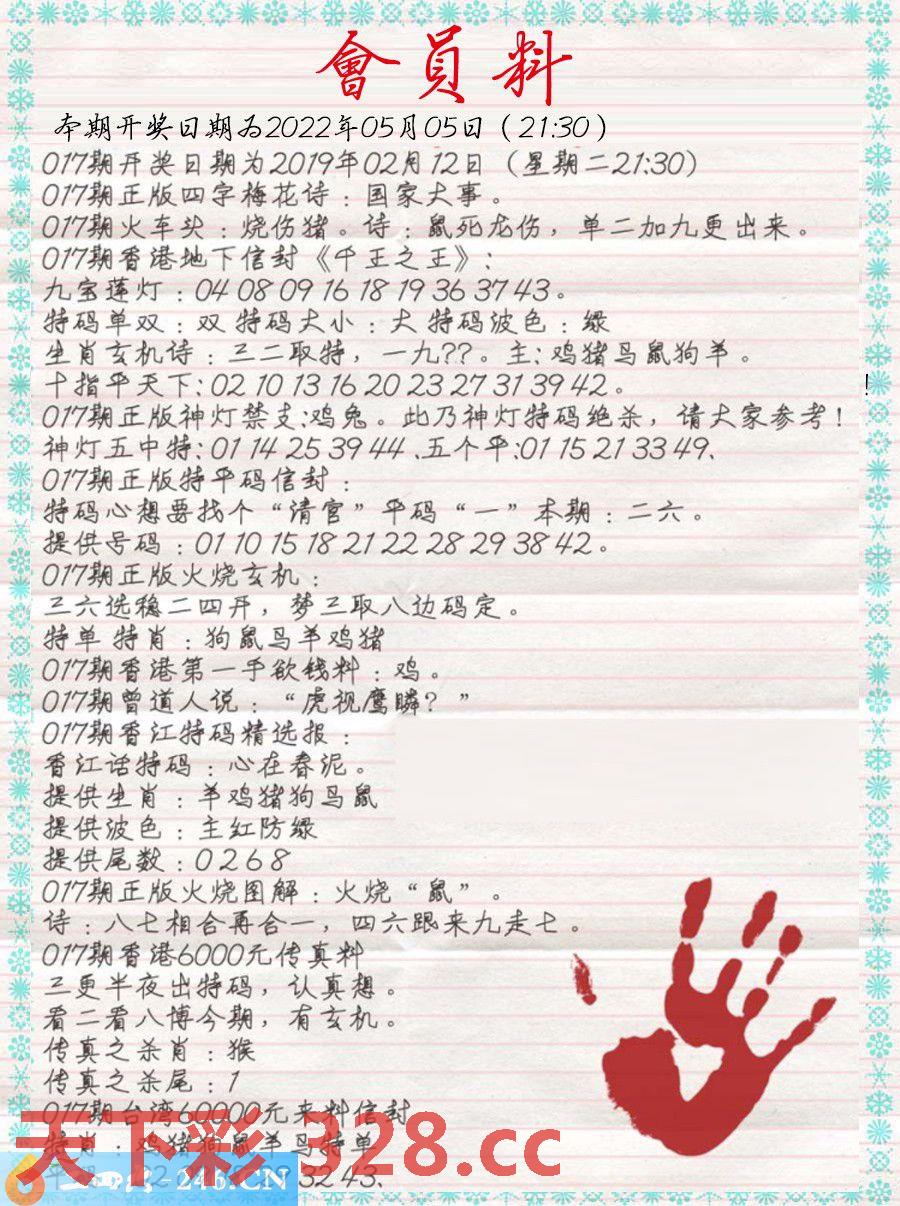 會員料
本期开奖日期为2022年05月05日（21:30）
017期开奖日期为2019年02月12日（星期二21:30）
017期正版四字梅花诗：国家大事。
017期火车头：烧伤猪。诗：鼠死龙伤，单二加九更出来。
017期香港地下信封《千王之王》：
九宝莲灯：04 08 09 16 18 19 36 37 43。
特码单双：双 特码大小：大 特码波色：绿
生肖玄机诗：三二取特，一九??。主：鸡猪马鼠狗羊。
十指平天下：02 10 13 16 20 23 27 31 39 42。 !
017期正版神灯禁支：鸡兔。此乃神灯特码绝杀，请大家参考！
神灯五中特：01 14 25 39 44 、五个平：01 15 21 33 49、
017期正版特平码信封：
特码心想要找个“清官”平码“一”本期：二六。
提供号码：01 10 15 18 21 22 28 29 38 42。
017期正版火烧玄机：
三六选稳二四开，梦三取八边码定。
特单 特肖：狗鼠马羊鸡猪
017期香港第一手欲钱料：鸡。
017期曾道人说：“虎视鹰瞵？”
017期香江特码精选报：
香江话特码：心在春泥。
提供生肖：羊鸡猪狗马鼠
提供波色：主红防绿
提供尾数：0 2 6 8
017期正版火烧图解：火烧“鼠”。
诗：八七相合再合一，四六跟来九走七。
017期香港6000元传真料
三更半夜出特码，认真想。
看二看八博今期，有玄机。
传真之杀肖：猴
传真之杀尾：1
017期台湾60000元来料信封
特肖：鸡猪狗鼠羊马特单
天下彩328.cc
32 43、
-246.CN